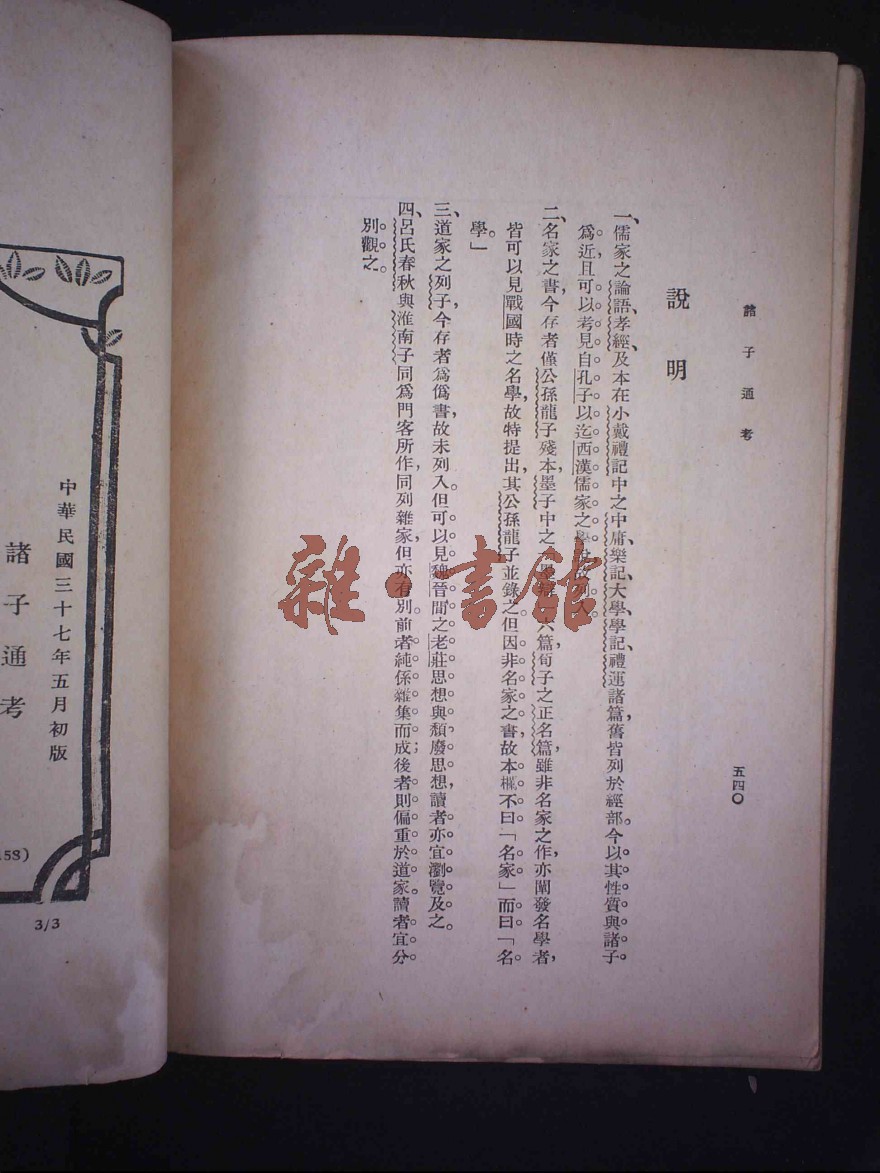 諸子通考
五四〇
說明
一、儒家之論語、孝經、及本在小戴禮記中之中庸、樂記、大學、學記、禮運諸篇，舊皆列於經部。今以其性質與諸子
爲近，且可以考見自孔子以迄西漢儒家之學說，故列入。
二、名家之書，今存者僅公孫龍子殘本，墨子中之墨辯六篇，荀子之正名篇，雖非名家之作，亦闡發名學者，
皆可以見戰國時之名學，故特提出，其公孫龍子並錄之。但因非名家之書，故本欄不曰「名家」而曰「名
學。」
三、道家之列子，今存者爲僞書，故未列入。但可以見魏晉間之老莊思想與頹廢思想，讀者亦宜瀏覽及之。
四、呂氏春秋與淮南子同爲門客所作，同列雜家，但亦有別。前者純係雜集而成；後者則偏重於道家。讀者宜分
別觀之。
雜·書館
中華民國三十七年五月初版
諸子通考
158)
3/3